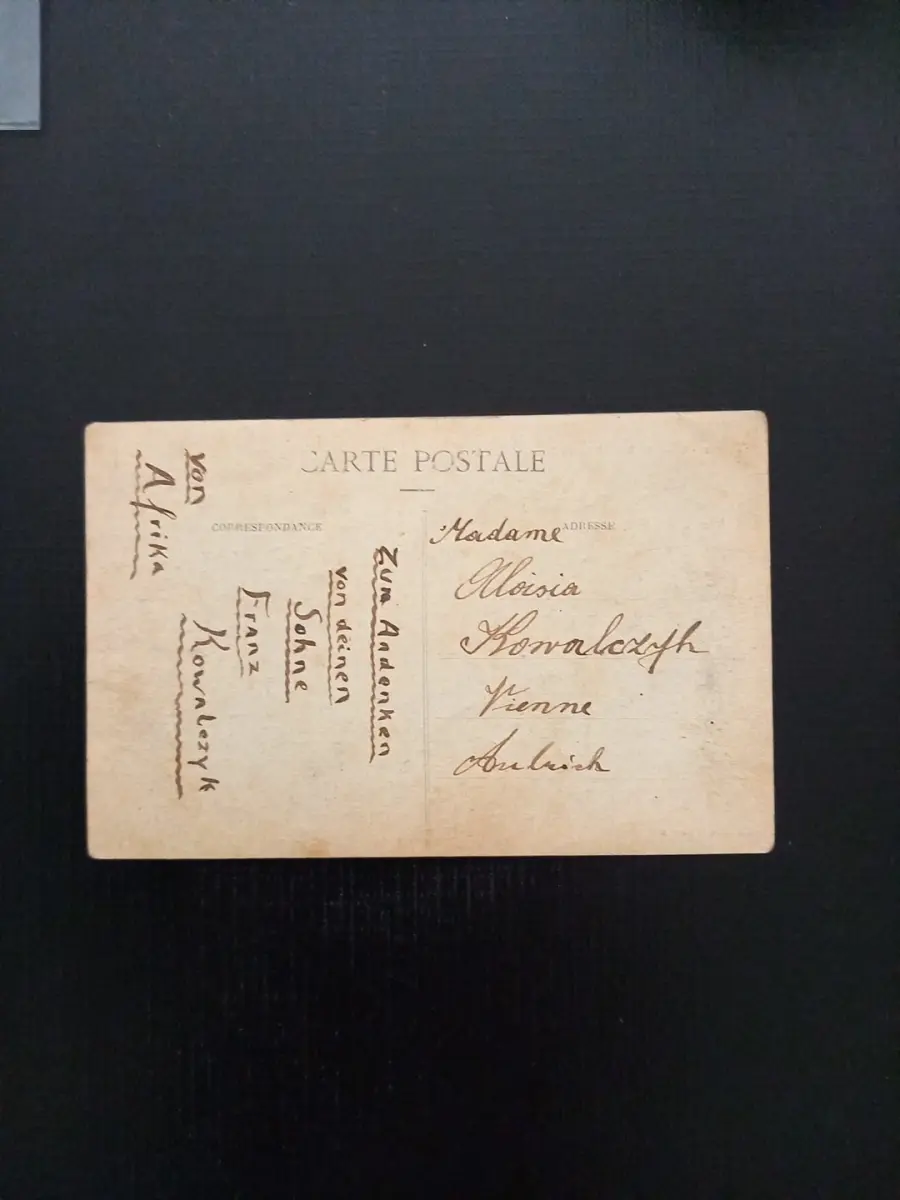 CARTE POSTALE
CORRESPONDANCE
ADRESSE
Zum Andenken
von deinen
Sohne
Franz
Kowalczyk
von
Afrika
Madame
Aloisia
Kowalczyk
Vienne